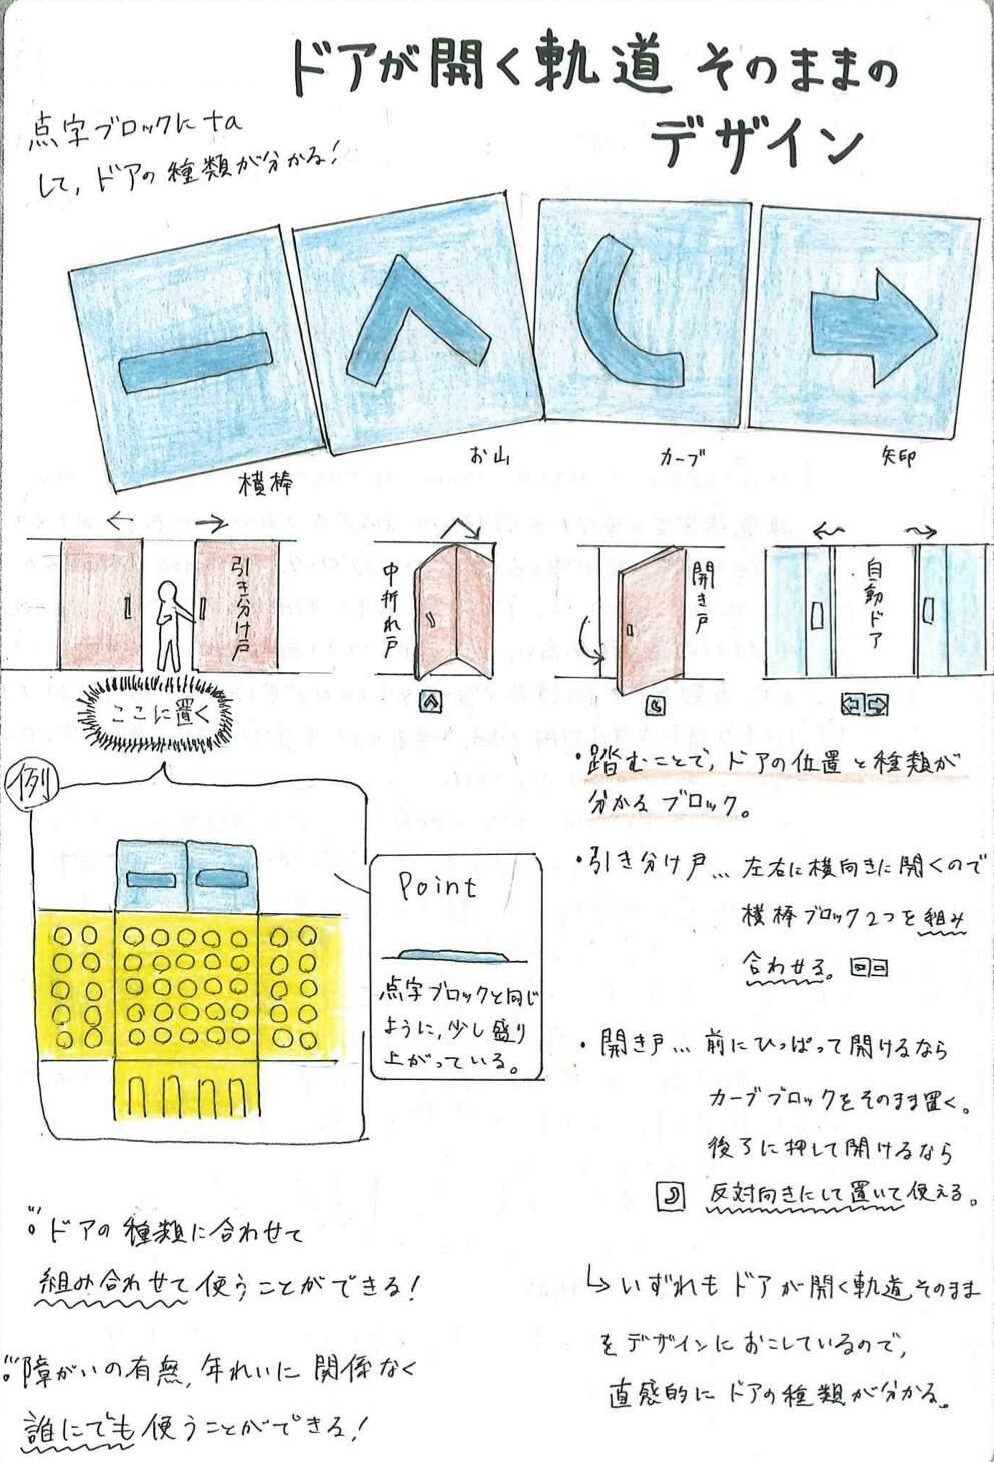 ドアが開く軌道 そのままの
デザイン
点字ブロックに+α
して、ドアの種類が分かる！
横棒
お山
カーブ
矢印
引き分け戸
中折れ戸
開き戸
自動ドア
ここに置く
例
Point
点字ブロックと同じ
ように、少し盛り
上がっている。
・踏むことで、ドアの位置と種類が
分かるブロック。
・引き分け戸… 左右に横向きに開くので
横棒ブロック2つを組み
合わせる。
・開き戸… 前にひっぱって開けるなら
カーブブロックをそのまま置く。
後ろに押して開けるなら
反対向きにして置いて使える。
↳いずれもドアが開く軌道そのまま
をデザインにおこしているので、
直感的にドアの種類が分かる。
ドアの種類に合わせて
組み合わせて使うことができる！
障がいの有無、年れいに関係なく
誰にでも使うことができる！